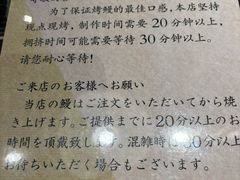 为了保证烤鳗的最佳口感，本店坚持
现点现烤，制作时间需要 20 分钟以上，
拥挤时间可能需要等待 30 分钟以上。
请您耐心等待！
ご来店のお客様へお願い
当店の鰻はご注文をいただいてから焼
き上げます。ご提供までに 20分以上のお
時間を頂戴致します。混雑時には30分以上
お待ちいただく場合もございます。